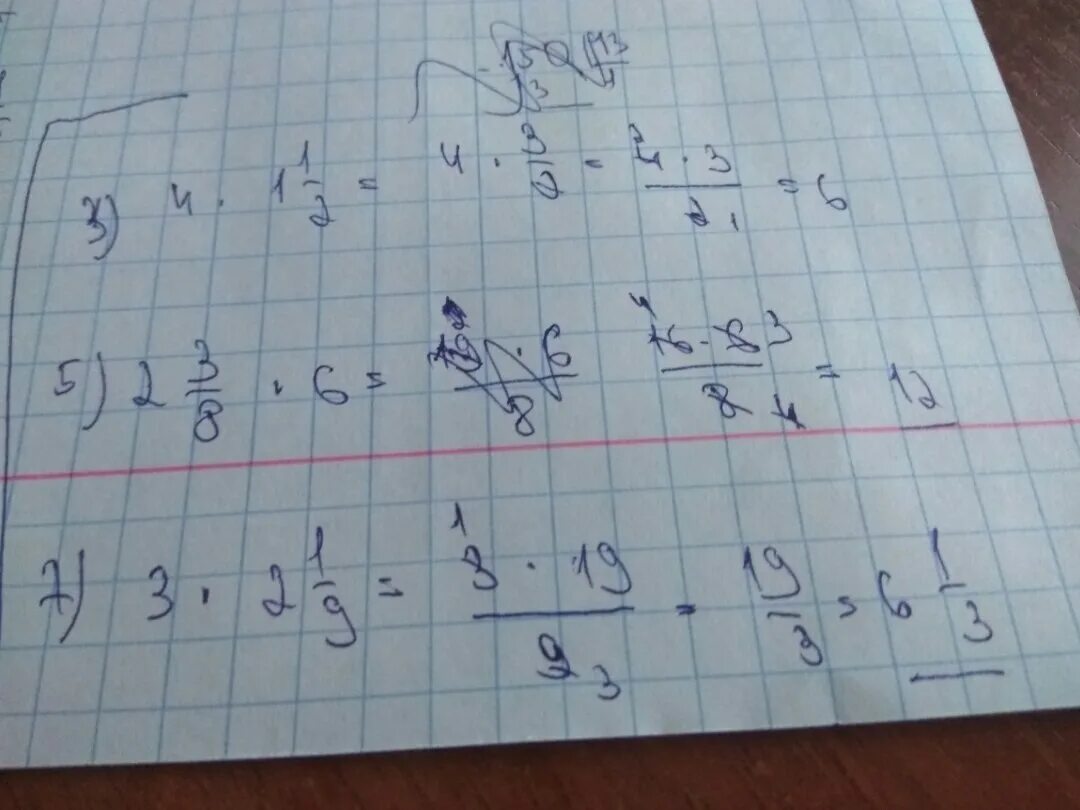 3) 4 · 1 1/2 = 4 · 3/2 = 4 · 3 / 2 = 6
5) 2 3/8 · 6 = 16 · 6 / 8 = 12
7) 3 · 2 1/9 = 3 · 19 / 9 = 19/3 = 6 1/3